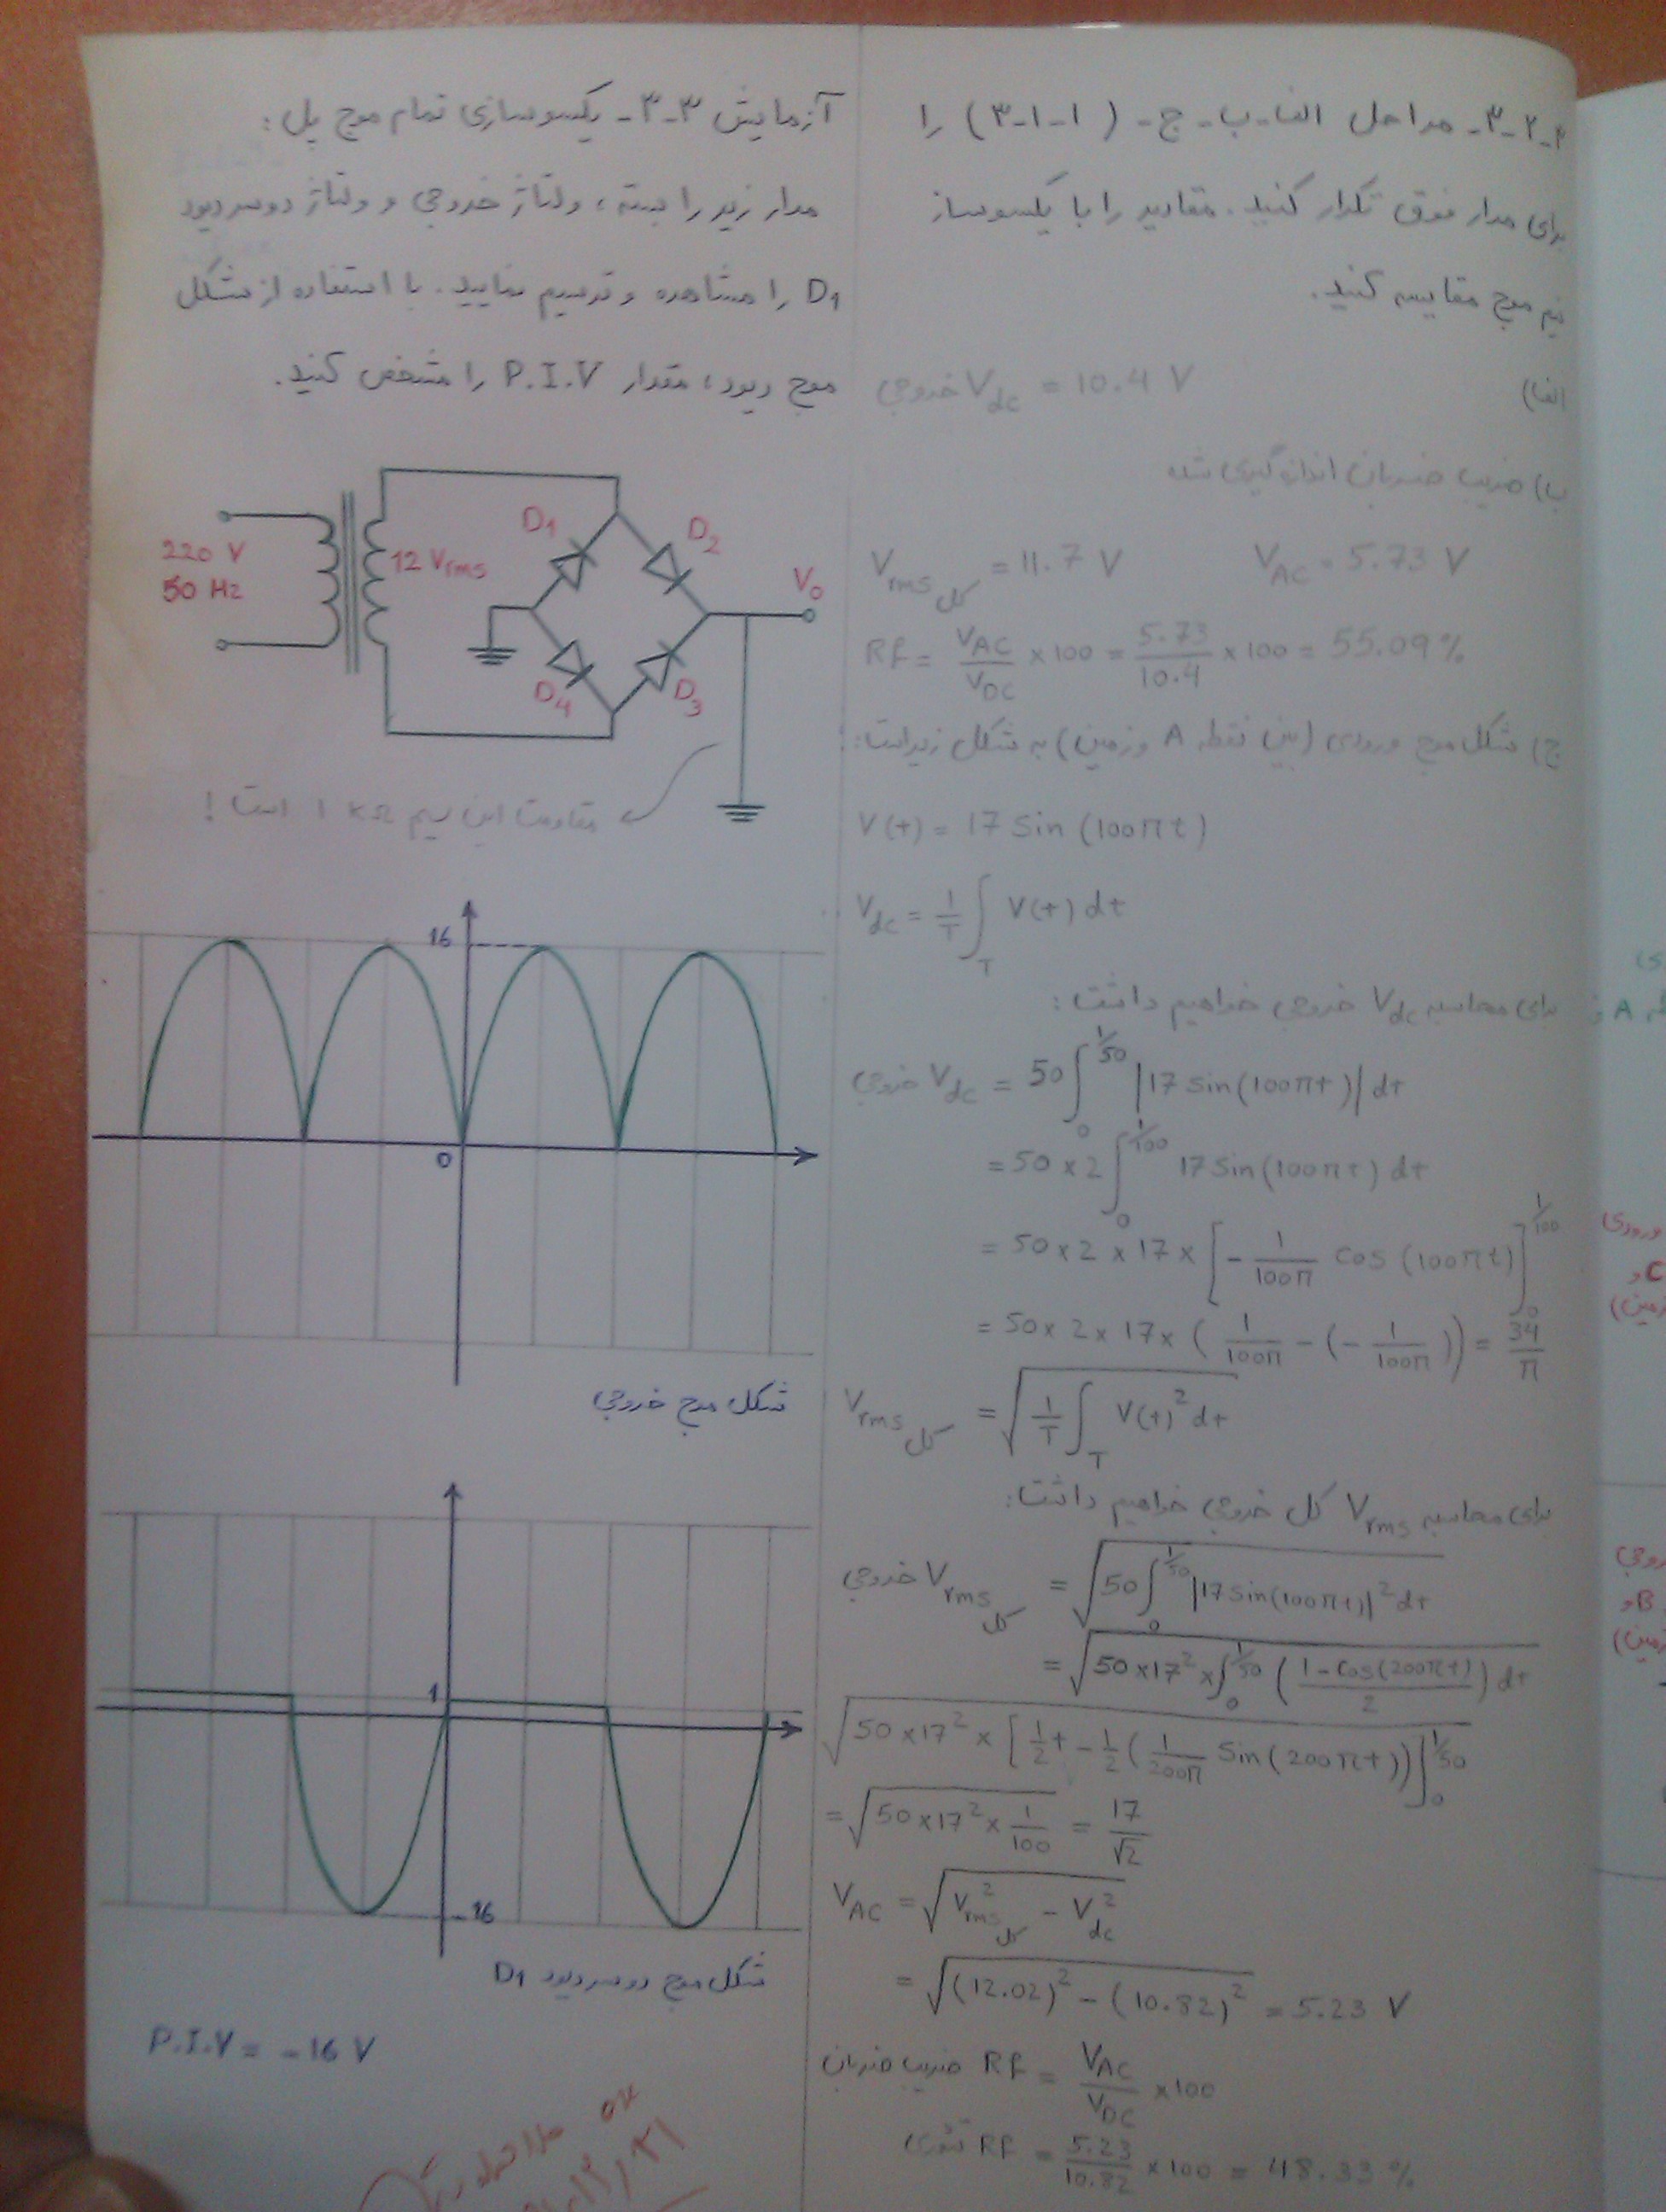 ۳-۲-۳- مراحل الف-ب-ج- (۳-۱-۱) را
برای مدار فوق تکرار کنید. مقادیر را با یکسوساز
نیم موج مقایسه کنید.
الف) خروجی Vdc = 10.4 V
ب) ضریب ضربان اندازه گیری شده
Vrms کل = 11.7 V VAC = 5.73 V
Rf = VAC/VDC × 100 = 5.73/10.4 × 100 = 55.09 %
ج) شکل موج ورودی (بین نقطه A و زمین) به شکل زیر است:
V(t) = 17 Sin (100πt)
Vdc = 1/T ∫T V(t) dt
برای محاسبه Vdc خروجی خواهیم داشت:
خروجی Vdc = 50 ∫0^1/50 |17 Sin(100πt)| dt
= 50 × 2 ∫0^1/100 17 Sin(100πt) dt
= 50 × 2 × 17 × [- 1/100π cos (100πt)]0^1/100
= 50 × 2 × 17 × (1/100π - (- 1/100π)) = 34/π
Vrms کل = √(1/T ∫T V(t)² dt)
برای محاسبه Vrms کل خروجی خواهیم داشت:
خروجی Vrms کل = √(50 ∫0^1/50 |17 Sin(100πt)|² dt)
= √(50×17² × ∫0^1/50 (1-Cos(200πt)/2) dt)
√(50×17² × [1/2 t - 1/2 (1/200π Sin(200πt))]0^1/50)
= √(50×17² × 1/100) = 17/√2
VAC = √(Vrms کل² - Vdc²)
= √((12.02)² - (10.82)²) = 5.23 V
ضریب ضربان Rf = VAC/VDC × 100
تئوری Rf = 5.23/10.82 × 100 = 48.33 %
آزمایش ۳-۳- یکسوسازی تمام موج پل:
مدار زیر را بسته، ولتاژ خروجی و ولتاژ دوسر دیود
D1 را مشاهده و ترسیم نمایید. با استفاده از شکل
موج دیود، مقدار P.I.V را مشخص کنید.
220 V
50 Hz
12 Vrms
D1
D2
D4
D3
Vo
مقاومت این سیم 1 KΩ است!
16
0
شکل موج خروجی
1
-16
شکل موج دوسر دیود D1
P.I.V = -16 V
OK